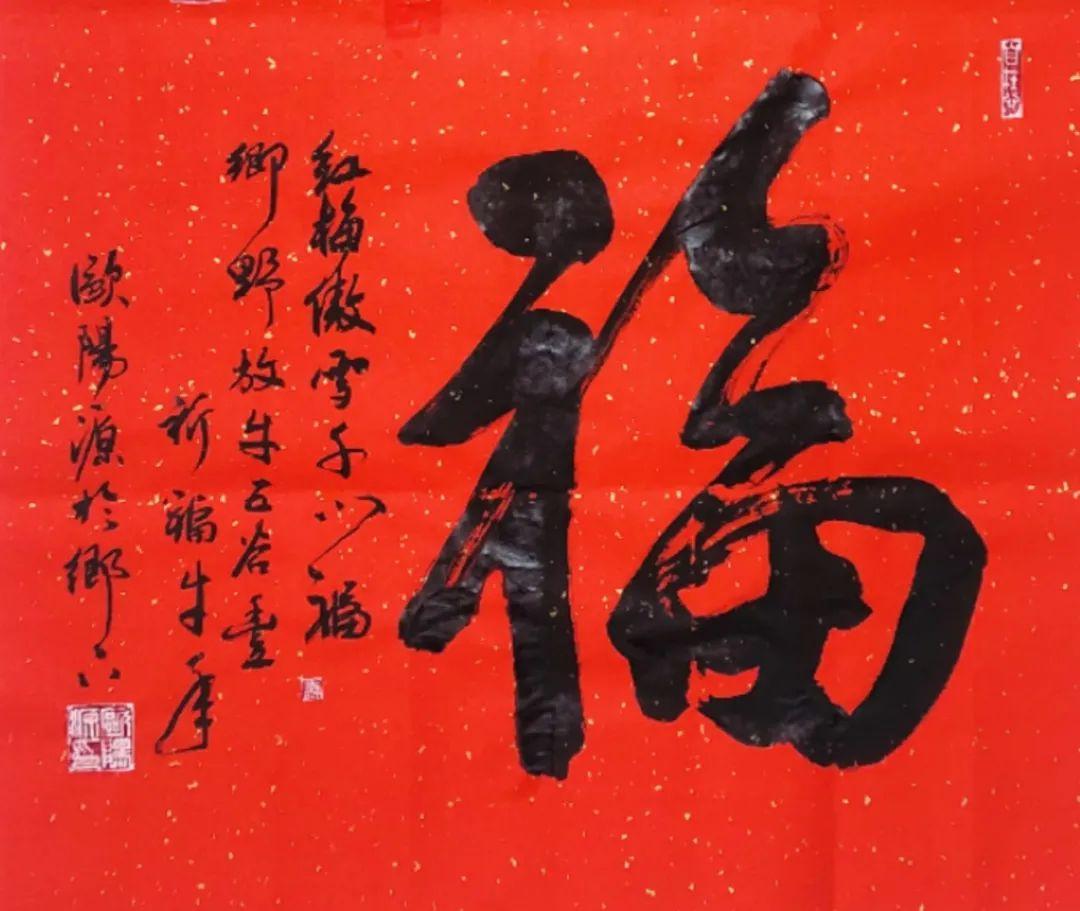 福
红梅傲雪千川福
鄉野放牛五谷豊
祈福牛年
歐陽源於鄉下